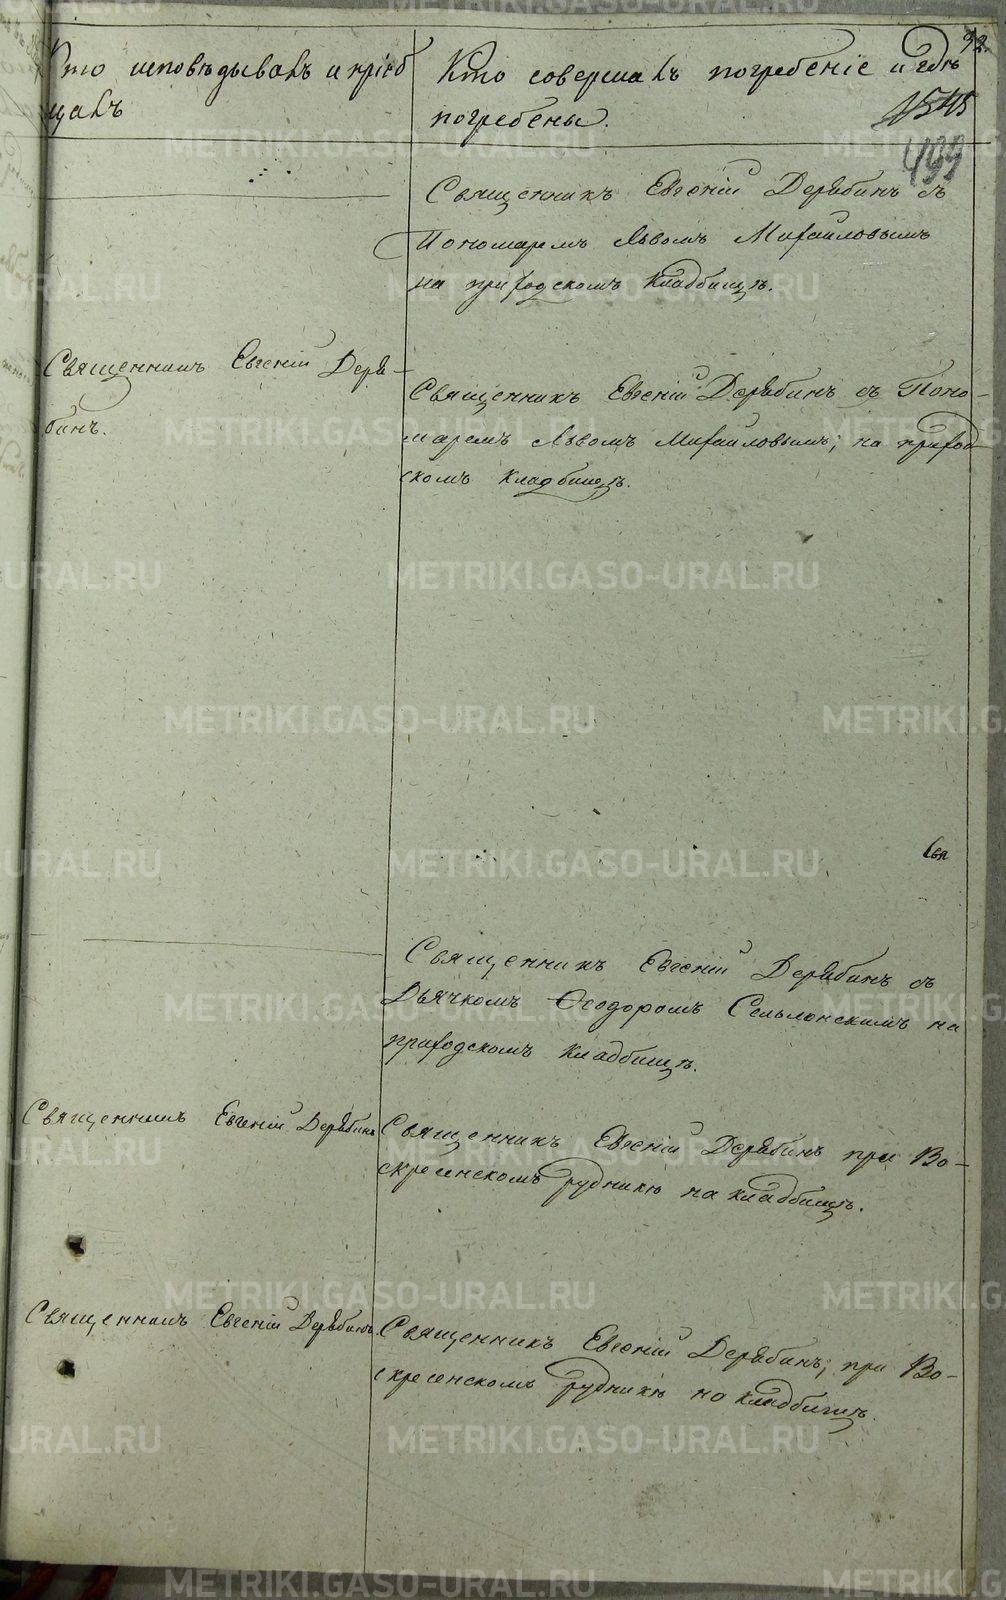 Кто исповѣдывалъ и пріоб
щалъ
Кто совершалъ погребеніе и гдѣ
погребены.
1545
499
Священникъ Евгеній Дерябинъ съ
Пономаремъ Львомъ Михайловымъ
на приходскомъ кладбищѣ.
Священникъ Евгеній Деря-
бинъ.
Священникъ Евгеній Дерябинъ съ Поно-
маремъ Львомъ Михайловымъ; на приход
скомъ кладбищѣ.
Свя
Священникъ Евгеній Дерябинъ съ
Дьячкомъ Ѳеодоромъ на
приходскомъ кладбищѣ.
Священникъ Евгеній Дерябинъ
Священникъ Евгеній Дерябинъ при Во-
скресенскомъ рудникѣ на кладбищѣ.
Священникъ Евгеній Дерябинъ.
Священникъ Евгеній Дерябинъ; при Во-
скресенскомъ рудникѣ на кладбищѣ.
METRIKI.GASO-URAL.RU